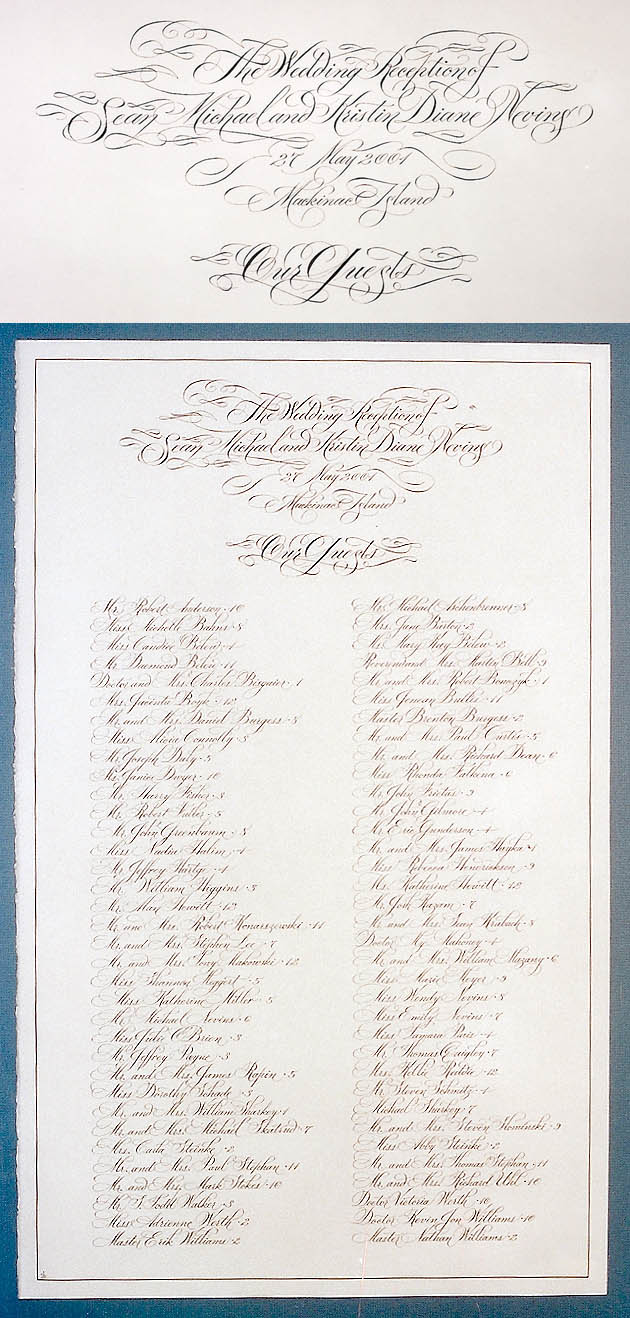 The Wedding Reception of
Sean Michael and Kristin Diane Nevins
27 May 2001
Mackinac Island
Our Guests
The Wedding Reception of
Sean Michael and Kristin Diane Nevins
27 May 2001
Mackinac Island
Our Guests
Mr. Robert Anderson · 10
Miss Michelle Bahns · 8
Miss Candice Below · 4
Mr. Desmond Below · 11
Doctor and Mrs. Charles Besgaier · 1
Mrs. Juventa Boyk · 12
Mr. and Mrs. Daniel Burgess · 8
Miss Alicia Connolly · 3
Mr. Joseph Daly · 5
Ms. Janice Dwyer · 10
Mr. Harry Fisher · 3
Mr. Robert Fuller · 5
Mr. John Greenbaum · 8
Miss Nadia Halim · 4
Mr. Jeffrey Hartje · 4
Mr. William Higgins · 3
Mr. Alan Hewitt · 12
Mr. and Mrs. Robert Konarszewski · 11
Mr. and Mrs. Stephen Lee · 7
Mr. and Mrs. Tony Makowski · 12
Miss Shannon Meggert · 5
Miss Katherine Miller · 5
Mr. Michael Nevins · 6
Miss Julie O'Brien · 3
Mr. Jeffrey Payne · 3
Mr. and Mrs. James Rapien · 5
Miss Dorothy Schade · 3
Mr. and Mrs. William Sharkey · 1
Mr. and Mrs. Michael Skatrud · 7
Mrs. Carla Steinke · 2
Mr. and Mrs. Paul Stephan · 11
Mr. and Mrs. Mark Stokes · 10
Mr. T. Todd Walker · 3
Miss Adrienne Werth · 2
Master Erik Williams · 2
Mr. Michael Aschenbrenner · 8
Mrs. Jane Barton · 2
Ms. Mary Kay Below · 2
Reverend and Mrs. Martin Bell · 9
Mr. and Mrs. Robert Bonczyk · 1
Miss Jenean Butler · 11
Master Brenton Burgess · 2
Mr. and Mrs. Paul Curtis · 5
Mr. and Mrs. Richard Dean · 6
Miss Rhonda Falkena · 6
Mr. John Freitas · 9
Mr. John Gilmore · 4
Mr. Eric Gunderson · 4
Mr. and Mrs. James Hayka · 1
Miss Rebecca Hendrickson · 9
Ms. Katherine Hewitt · 12
Mr. Josh Kazam · 7
Mr. and Mrs. Sean Krabach · 8
Doctor My Mahoney · 4
Mr. and Mrs. William Mazany · 6
Miss Marie Meyer · 9
Miss Wendy Nevins · 8
Miss Emily Nevins · 7
Miss Tamara Pair · 4
Mr. Thomas Quigley · 7
Mrs. Kellie Reidie · 12
Mr. Steven Schmitz · 4
Michael Sharkey · 7
Mr. and Mrs. Steven Slominski · 9
Miss Abby Steinke · 2
Mr. and Mrs. Thomas Stephan · 11
Mr. and Mrs. Richard Uhl · 10
Doctor Victoria Werth · 10
Doctor Kevin Jon Williams · 10
Master Nathan Williams · 2